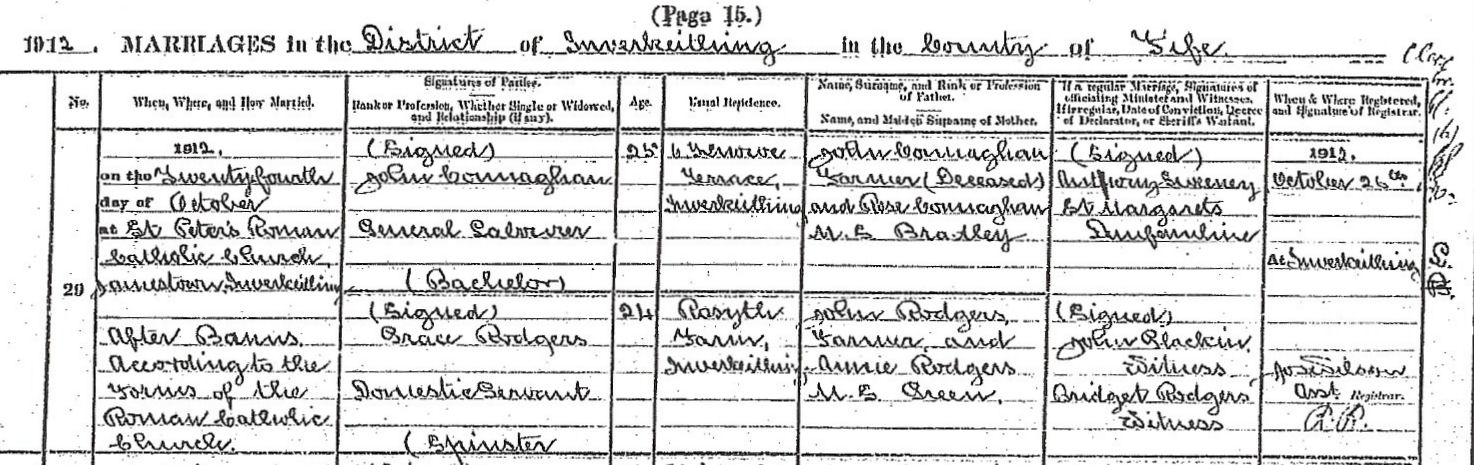 (Page 15.)
1912. MARRIAGES in the District of Inverkeithing in the County of Fife
No.
When, Where, and How Married.
Signatures of Parties.
Rank or Profession, Whether Single or Widowed,
and Relationship (if any).
Age.
Usual Residence.
Name, Surname, and Rank or Profession
of Father.
Name, and Maiden Surname of Mother.
If a regular Marriage, Signatures of
officiating Minister and Witnesses.
If irregular, Date of Conviction, Decree
of Declarator, or Sheriff's Warrant.
When & Where Registered,
and Signature of Registrar.
29
1912,
on the Twentyfourth
day of October
at St Peter's Roman
Catholic Church,
Jamestown, Inverkeithing
After Banns.
According to the
Forms of the
Roman Catholic
Church.
(Signed)
John Connaghan
General Labourer
(Bachelor)
(Signed)
Grace Rodgers
Domestic Servant
(Spinster
25
24
Terrace,
Inverkeithing
Rosyth
Farm,
Inverkeithing
John Connaghan
Farmer (Deceased)
and Rose Connaghan
M.S Bradley
John Rodgers,
Farmer, and
Annie Rodgers
M.S Green.
(Signed)
Anthony Sweeney
St Margarets
Dunfermline
(Signed)
John Blackin,
Witness
Bridget Rodgers
Witness
1912.
October 26th,
At Inverkeithing
Asst Registrar.